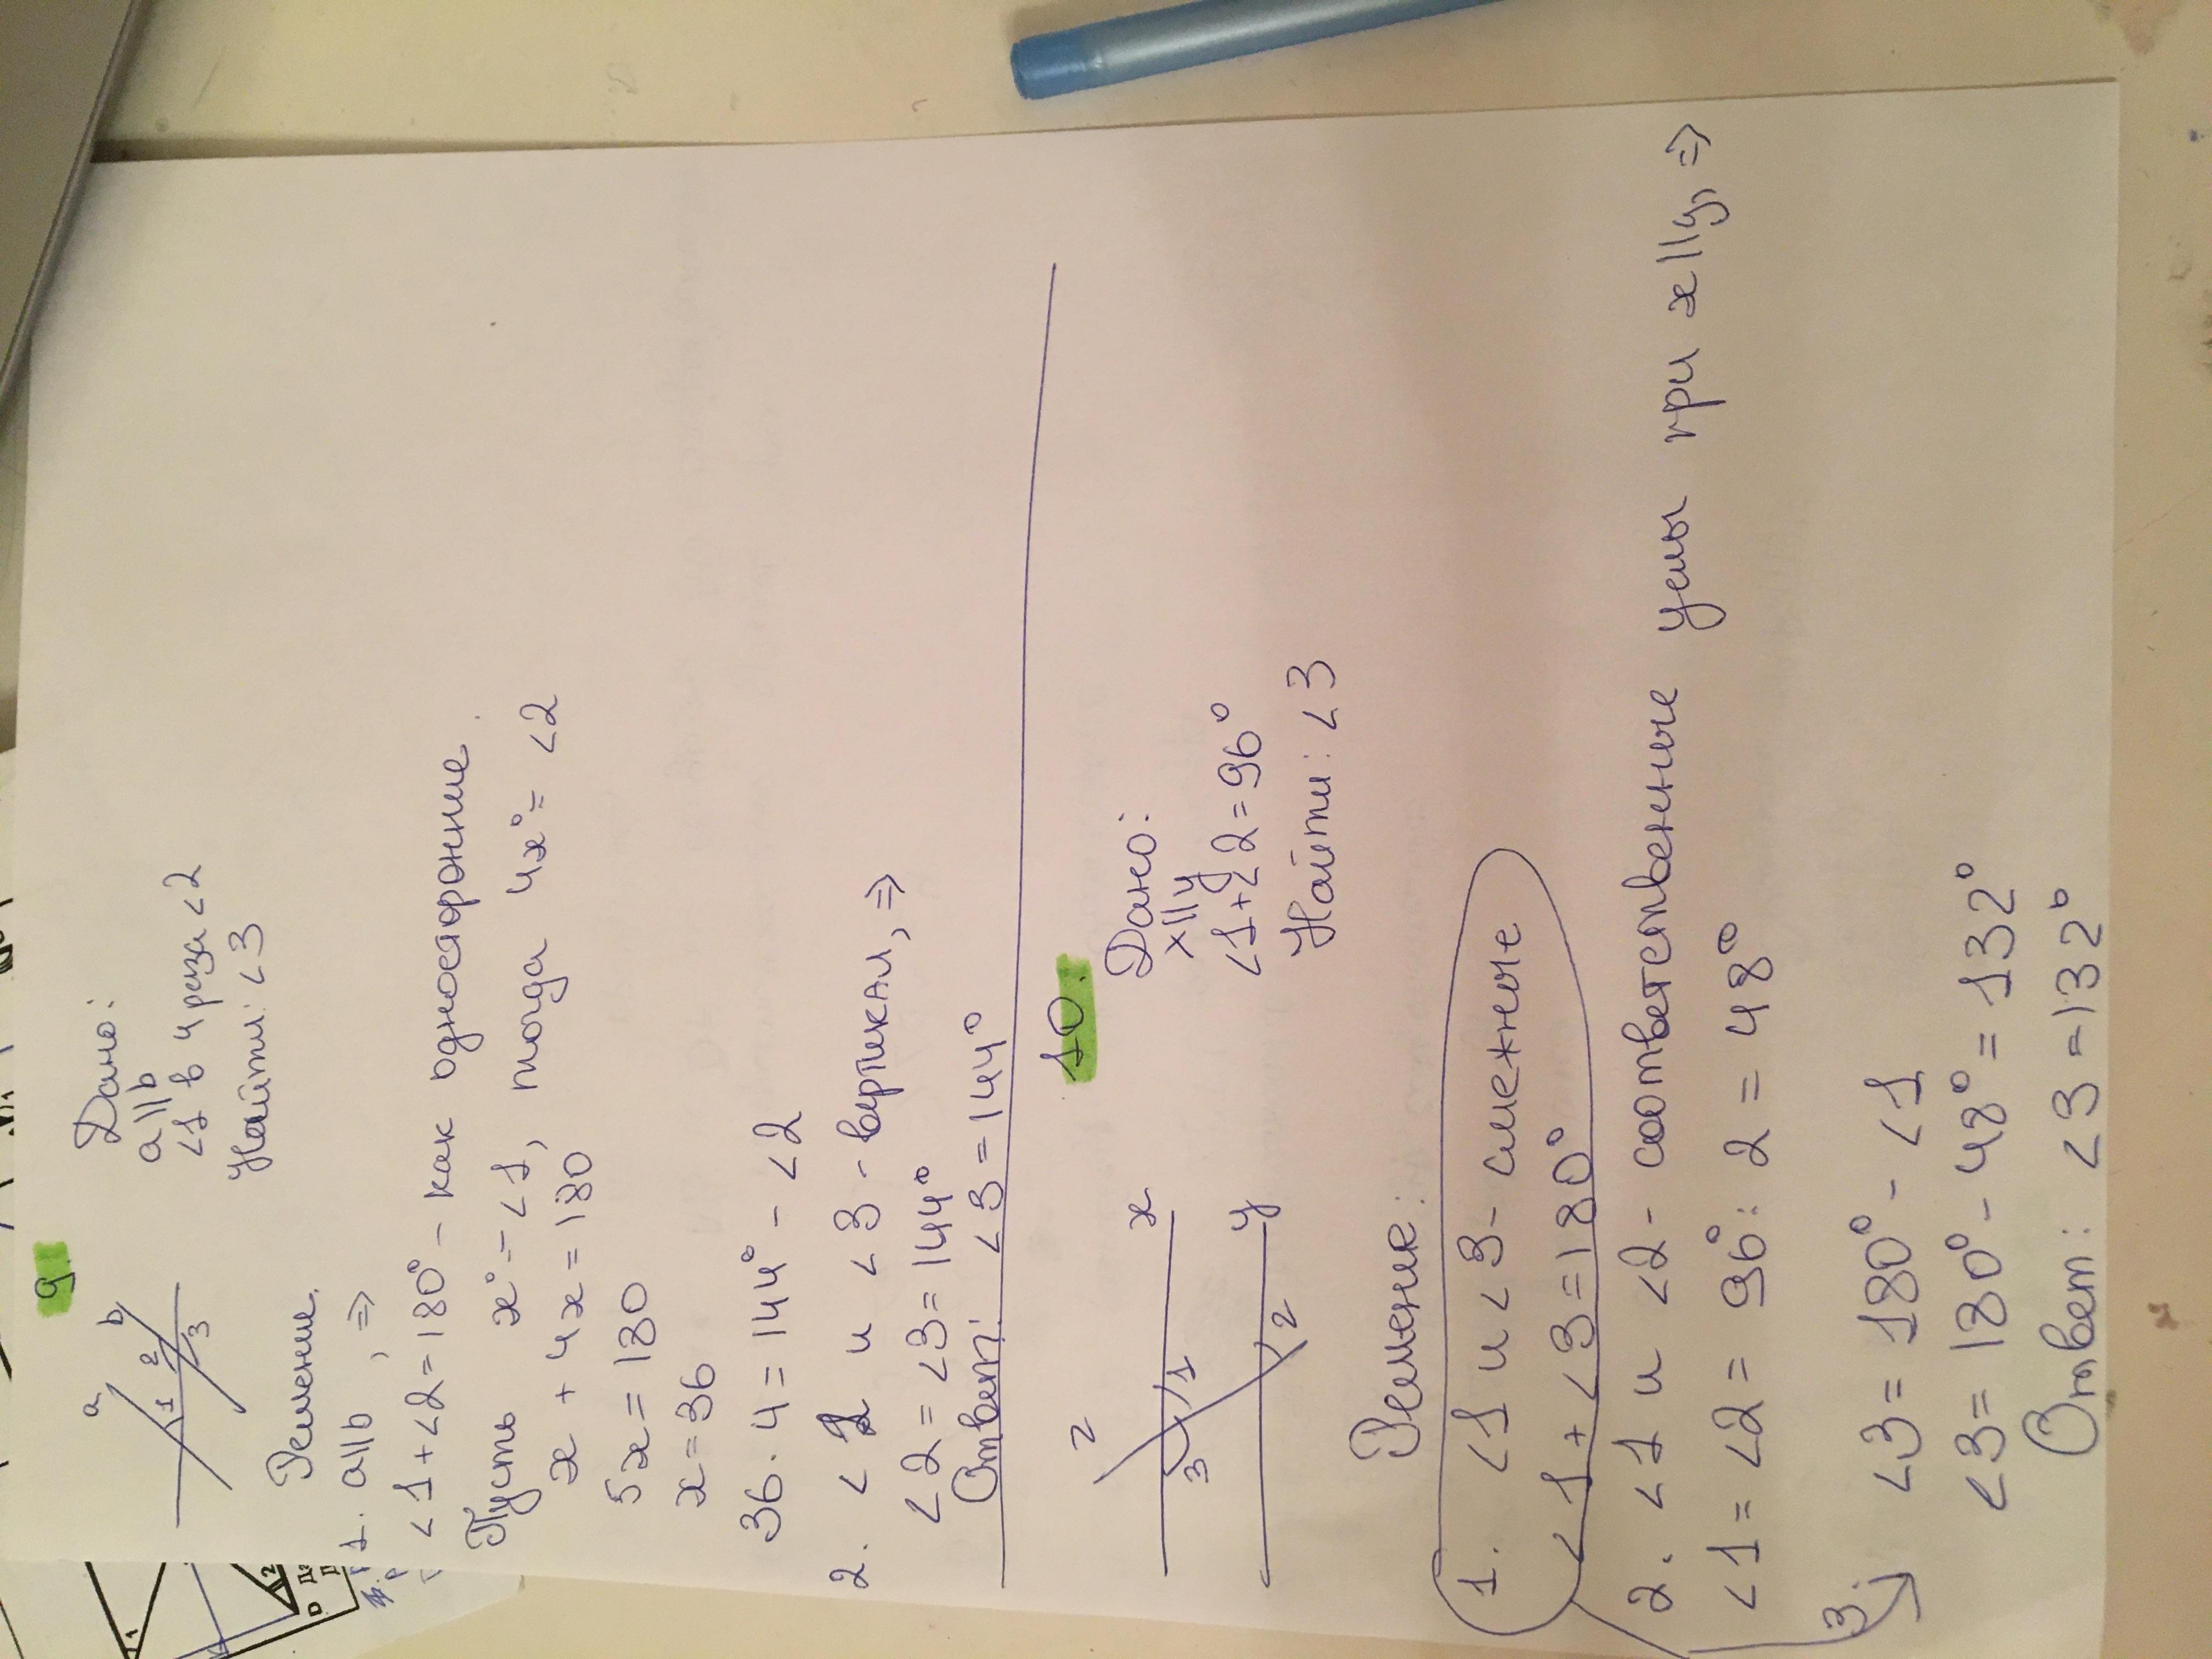 9.
Дано:
a||b
<1 в 4 раза <2
Найти: <3
a
b
1
2
3
Решение.
1. a||b, =>
<1+<2=180° - как односторонние.
Пусть x°=<1, тогда 4x°=<2
x+4x=180
5x=180
x=36
36·4=144° - <2
2. <2 и <3 - вертикал, =>
<2=<3=144°
Ответ: <3=144°
10.
Дано:
x||y
<1+<2=96°
Найти: <3
z
x
3
1
y
2
Решение:
1. <1 и <3 - смежные
<1+<3=180°
2. <1 и <2 - соответственные углы при x||y, =>
<1=<2=96°:2=48°
3.
<3=180°-<1
<3=180°-48°=132°
Ответ: <3=132°